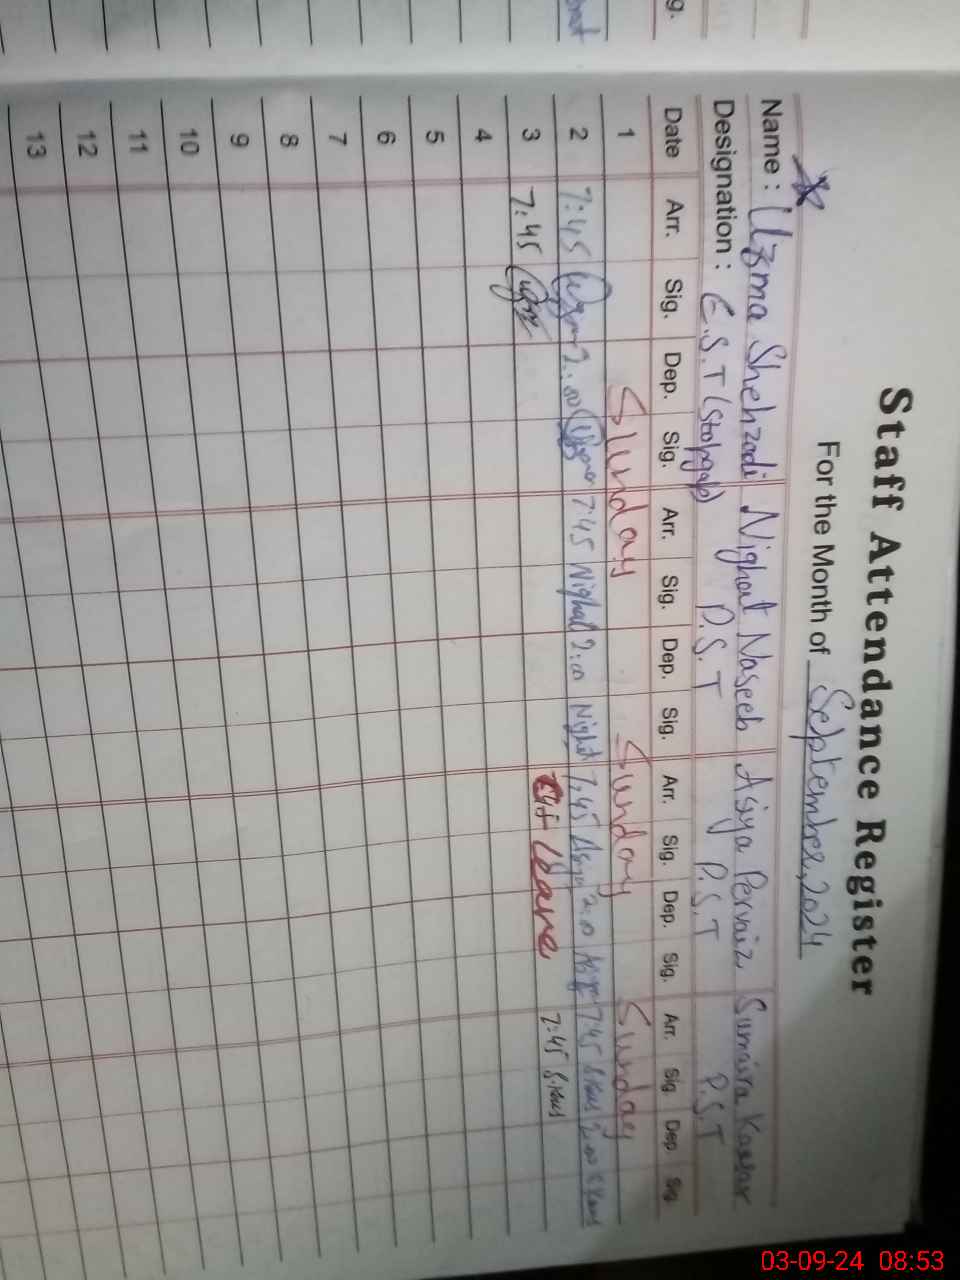 Staff Attendance Register
For the Month of September, 2024
Name : Uzma Shehzadi Nighat Naseeb Asiya Pervaiz Sumaira Kausar
Designation : E.S.T (Stopgap) P.S.T P.S.T P.S.T
Date Arr. Sig. Dep. Sig. Arr. Sig. Dep. Sig. Arr. Sig. Dep. Sig. Arr. Sig Dep Sig
1 Sunday Sunday Sunday
2 7:45 2:00 7:45 Nighat 2:00 Nighat 7:45 Asiya 2:0 7:45 2:00
3 7:45 7:45 Leave 7:45
4
5
6
7
8
9
10
11
12
13
g.
03-09-24 08:53